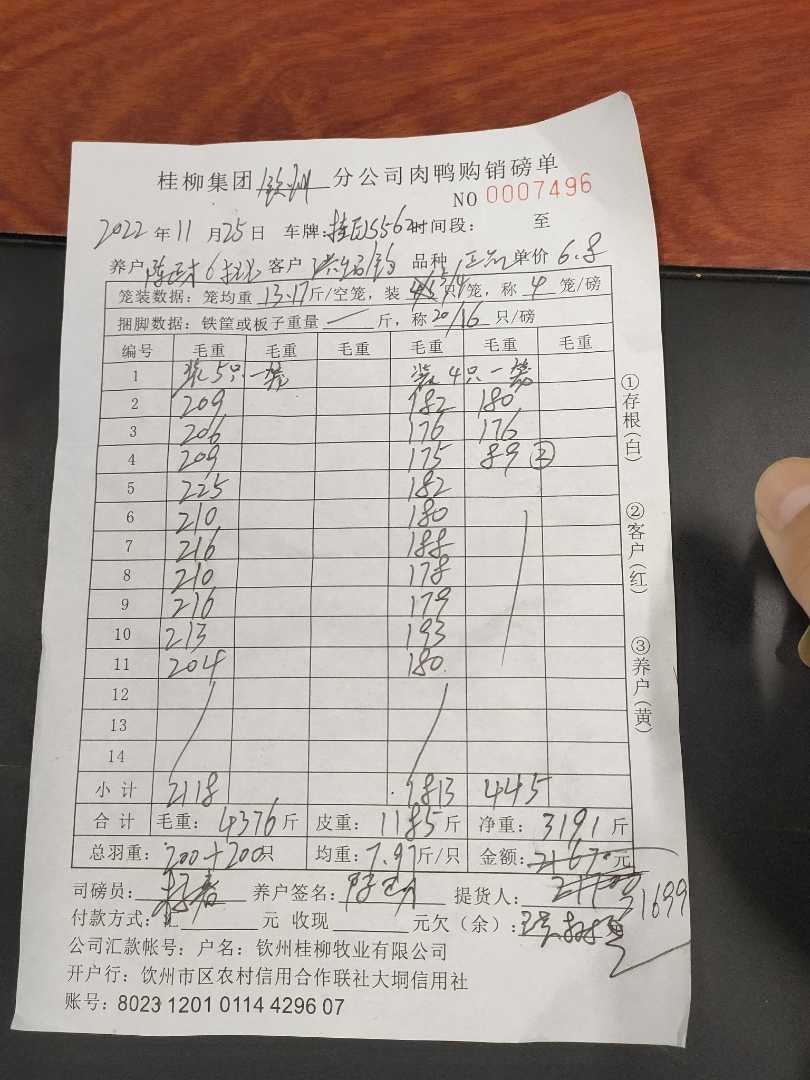 桂柳集团 钦州 分公司肉鸭购销磅单
NO 0007496
2022 年 11 月 25 日 车牌: 时间段: 至
养户 客户 品种 单价 6.8
笼装数据: 笼均重 13.17 斤/空笼, 装 5/4 只/笼, 称 4 笼/磅
捆脚数据: 铁筐或板子重量 — 斤, 称 20/16 只/磅
编号 毛重 毛重 毛重 毛重 毛重 毛重
1 装5只一笼 装4只一笼
2 209 182 180
3 206 176 176
4 209 175 89 ②
5 225 182
6 210 180
7 216 188
8 210 178
9 216 179
10 213 193
11 204 180
12
13
14
小计 2118 1813 445
合计 毛重: 4376 斤 皮重: 1185 斤 净重: 3191 斤
总羽重: 200+200 只 均重: 7.97 斤/只 金额: 21670 元
21700
21699
司磅员: 养户签名: 提货人:
付款方式: 汇 元 收现 元欠(余):
公司汇款帐号: 户名: 钦州桂柳牧业有限公司
开户行: 钦州市区农村信用合作联社大垌信用社
账号: 8023 1201 0114 4296 07
①存根(白)
②客户(红)
③养户(黄)